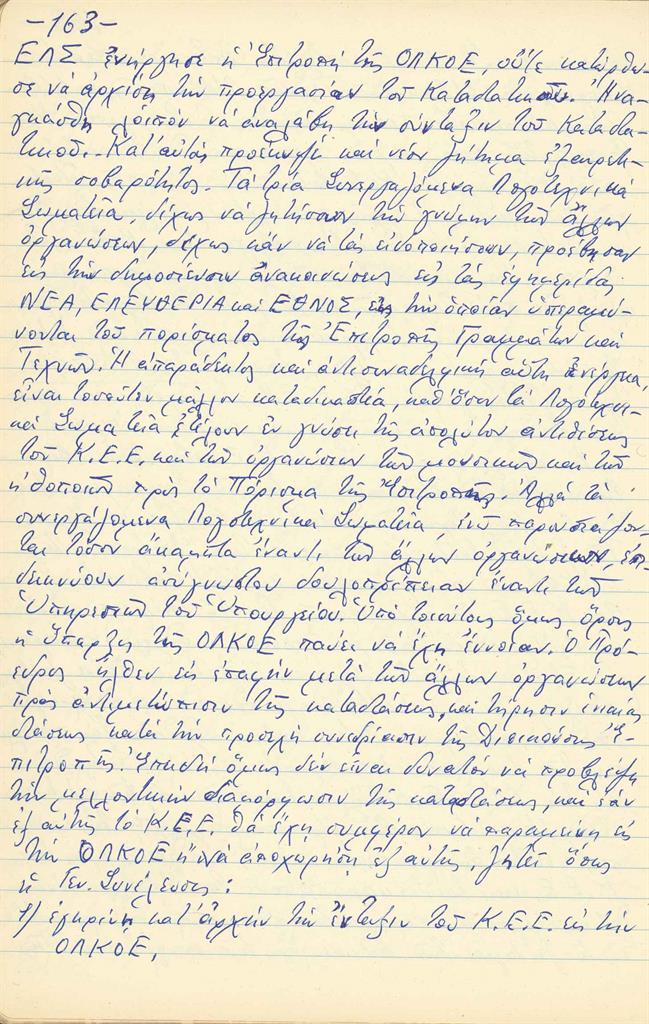 -163-
ΕΛΣ ἐνήργησε ἡ Ἐπιτροπή τῆς ΟΛΚΟΕ, οὔτε κατώρθω-
σε νά ἀρχίσῃ τήν προεργασίαν τοῦ Καταστατικοῦ. Ἠνα-
γκάσθη λοιπόν νά ἀναλάβῃ τήν σύνταξιν τοῦ Καταστα-
τικοῦ.. Κατ' αὐτάς προέκυψε καί νέον ζήτημα ἐξαιρετι-
κῆς σοβαρότητος. Τά τρία Συνεργαζόμενα Λογοτεχνικά
Σωματεῖα, δίχως νά ζητήσουν τήν γνώμην τῶν ἄλλων
ὀργανώσεων, δίχως κἄν νά τάς εἰδοποιήσουν, προέβησαν
εἰς τήν δημοσίευσιν ἀνακοινώσεως εἰς τάς ἐφημερίδας
ΝΕΑ, ΕΛΕΥΘΕΡΙΑ καί ΕΘΝΟΣ, εἰς τήν ὁποίαν ὑπεραμύ-
νονται τοῦ πορίσματος τῆς Ἐπιτροπῆς Γραμμάτων καί
Τεχνῶν. Ἡ ἀπαράδεκτος καί ἀντισυναδελφική αὐτή ἐνέργεια,
εἶναι τοσοῦτον μᾶλλον καταδικαστέα, καθ' ὅσον τά Λογοτεχνι-
κά Σωματεῖα ἐτέλουν ἐν γνώσει τῆς ἀπολύτου ἀντιθέσεως
τοῦ Κ.Ε.Ε. καί τῶν ὀργανώσεων τῶν μουσικῶν καί τῶν
ἠθοποιῶν πρός τό Πόρισμα τῆς Ἐπιτροπῆς. Ἀλλά τά
συνεργαζόμενα Λογοτεχνικά Σωματεῖα, ἐνῶ παρουσιάζον-
ται τόσον ἄκαμπτα ἔναντι τῶν ἄλλων ὀργανώσεων, ἐπι-
δεικνύουν ἀσύγνωστον δουλοπρέπειαν ἔναντι τῶν
Ὑπηρεσιῶν τοῦ Ὑπουργείου. Ὑπό τοιούτους ὅμως ὅρους
ἡ ὕπαρξις τῆς ΟΛΚΟΕ παύει νά ἔχῃ ἔννοιαν. Ὁ Πρό-
εδρος ἦλθεν εἰς ἐπαφήν μετά τῶν ἄλλων ὀργανώσεων
πρός ἀντιμετώπισιν τῆς καταστάσεως, καί τήρησιν ἑνιαίας
στάσεως κατά τήν προσεχῆ συνεδρίασιν τῆς Διοικούσης Ἐ-
πιτροπῆς. Ἐπειδή ὅμως δέν εἶναι δυνατόν νά προβλέψῃ
τήν μελλοντικήν διαμόρφωσιν τῆς καταστάσεως, καί ἐάν
ἐξ αὐτῆς τό Κ.Ε.Ε. θά ἔχῃ συμφέρον νά παραμείνῃ εἰς
τήν ΟΛΚΟΕ ἤ νά ἀποχωρήσῃ ἐξ αὐτῆς, ζητεῖ ὅπως
ἡ Γεν. Συνέλευσις:
1) ἐγκρίνῃ κατ' ἀρχήν τήν ἔνταξιν τοῦ Κ.Ε.Ε. εἰς τήν
ΟΛΚΟΕ,